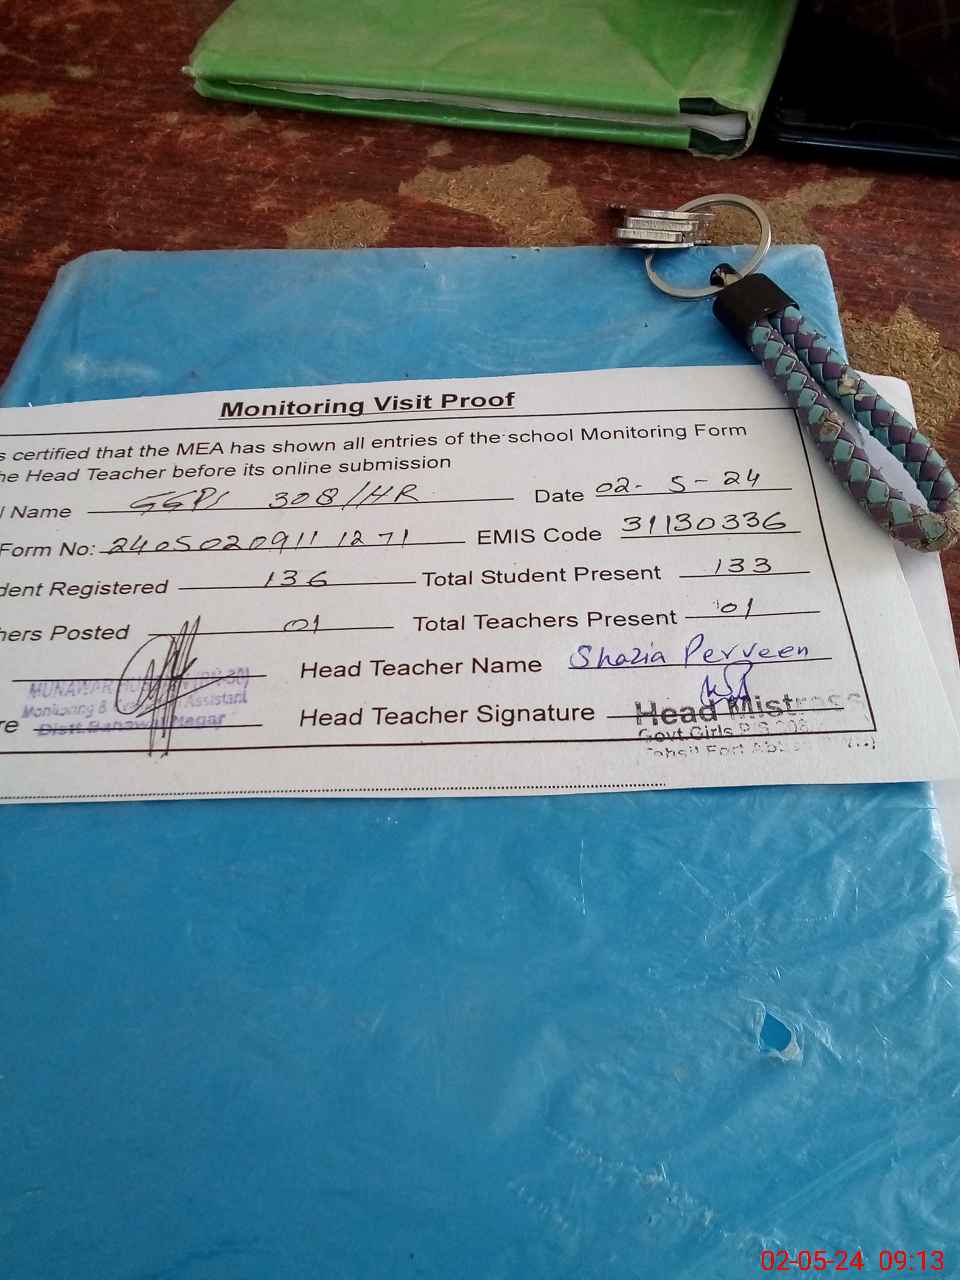 Monitoring Visit Proof
s certified that the MEA has shown all entries of the school Monitoring Form
he Head Teacher before its online submission
l Name GGPS 308/HR Date 02-5-24
Form No: 2405020911 1271 EMIS Code 31130336
dent Registered 136 Total Student Present 133
hers Posted 01 Total Teachers Present 01
Head Teacher Name Shazia Perveen
MUNAWAR
Monitoring & Assistant
re Distt. Bahawal Nagar Head Teacher Signature Head Mistress
Govt. Girls P/S 308
Tehsil Fort
02-05-24 09:13